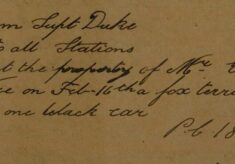 m Supt Duke
to all Stations
t the property of Mr
e on Feb-16th a fox terri
one black ear
P.C 18